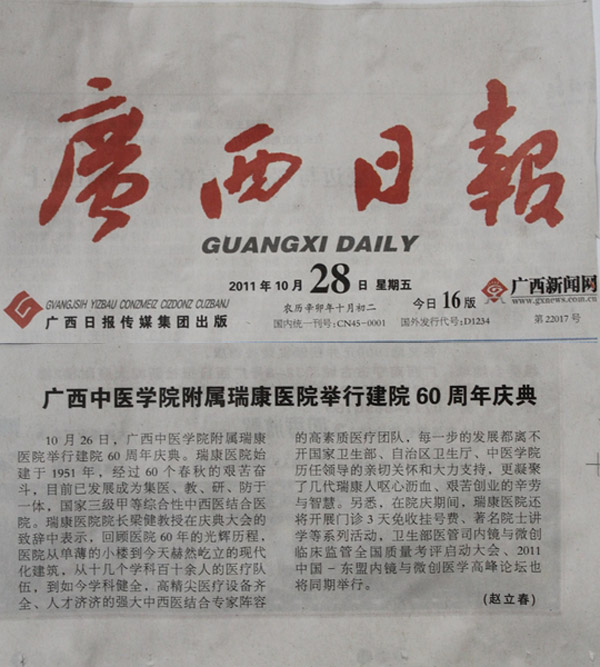 廣西日報
GUANGXI DAILY
2011年10月28日 星期五
GVANGJSIH YIZBAU CONZMEIZ CIZDONZ CUZBANJ
广西日报传媒集团出版
农历辛卯年十月初二
今日16版
国内统一刊号:CN45-0001 国外发行代号:D1234
广西新闻网
www.gxnews.com.cn
第22017号
广西中医学院附属瑞康医院举行建院60周年庆典
10月26日,广西中医学院附属瑞康
医院举行建院60周年庆典。瑞康医院始
建于1951年,经过60个春秋的艰苦奋
斗,目前已发展成为集医、教、研、防于
一体,国家三级甲等综合性中西医结合医
院。瑞康医院院长梁健教授在庆典大会的
致辞中表示,回顾医院60年的光辉历程,
医院从单薄的小楼到今天赫然屹立的现代
化建筑,从十几个学科百十余人的医疗队
伍,到如今学科健全,高精尖医疗设备齐
全、人才济济的强大中西医结合专家阵容
的高素质医疗团队,每一步的发展都离不
开国家卫生部、自治区卫生厅、中医学院
历任领导的亲切关怀和大力支持,更凝聚
了几代瑞康人呕心沥血、艰苦创业的辛劳
与智慧。另悉,在院庆期间,瑞康医院还
将开展门诊3天免收挂号费、著名院士讲
学等系列活动,卫生部医管司内镜与微创
临床监管全国质量考评启动大会、2011
中国-东盟内镜与微创医学高峰论坛也
将同期举行。
(赵立春)